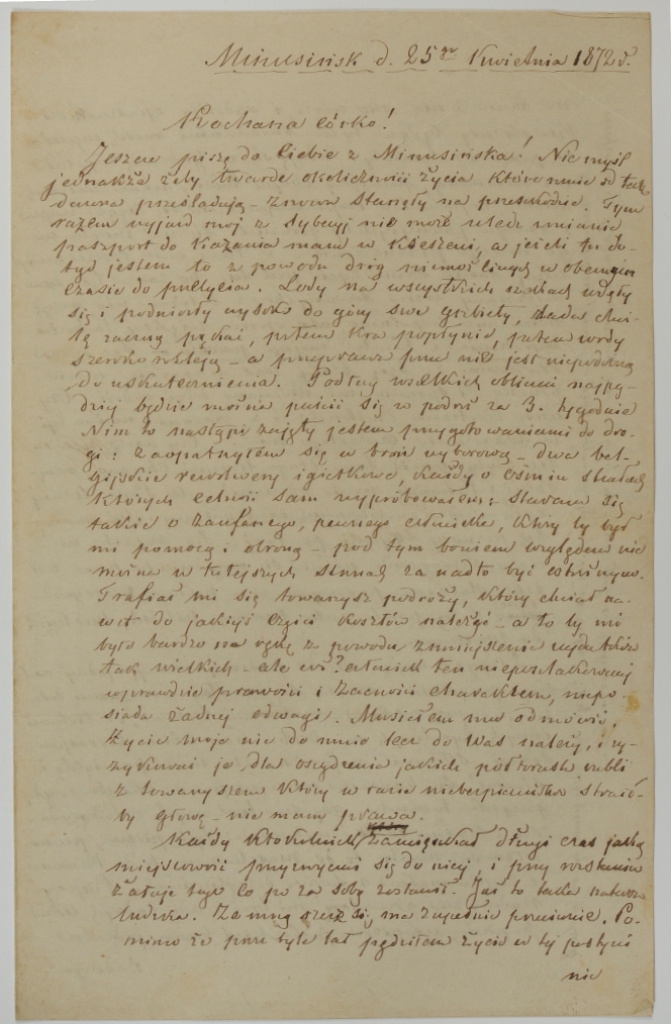 Minusińsk d. 25go Kwietnia 1872 r.
Kochana Córko!
Jeszcze piszę do Ciebie z Minusińska! Nie myśl
jednakże żeby twarde okoliczności życia które mnie od tak
dawna prześladują – znowu stanęły na przeszkodzie. Tym
razem wyjazd mój z Sybcyji nie może uledz zmianie
paszport do Kazania mam w kieszeni, a jeżeli tu do-
tąd jestem to z powodu dróg niemożliwych w obecnym
czasie do przebycia. Lody na wszystkich rzekach wzdęły
się i podniosły wysoko do góry swe grzbiety, lada chwi-
lę zaczną pękać, potem kra popłynie, potem wody
szeroko rozleją – a przeprawa przez nie jest niepodobną
do uskutecznienia. Podług wszelkich obliczeń najprę-
dzej będzie można puścić się w podróż za 3. tygodnie
Nim to nastąpi zajęty jestem przygotowaniami do dro-
gi: zaopatrzyłem się w broń wyborową – dwa bel-
gijskie rewolwery igiełkowe, każdy o ośmiu strzałach
których celność sam wypróbowałem; staram się
także o zaufanego, pewnego człowieka, który by był
mi pomocą i obroną – pod tym bowiem względem nie
można w tutejszych stronach za nadto być ostrożnym.
Trafiał mi się towarzysz podróży, który chciał na-
wet do jakiejś części kosztów należeć – a to by mi
było bardzo na rękę z powodu zmniejszenia wydatków
tak wielkich – ale cóż? człowiek ten nieposzlakowanej
wprawdzie prawości i zacności charakteru, niepo-
siada żadnej odwagi. Musiałem mu odmówić,
życie moje nie do mnie lecz do Was należy, i ry-
zykować je dla oszczędzenia jakich półtorasta rubli
z towarzyszem który w razie niebezpieczeństwa stracił-
by głowę – nie mam prawa.
Każdy ktokolwiek zamieszkał długi czas jaką
miejscowość przyzwyczai się do niej, i przy rozstaniu
żałuje tego co po za sobą zostawił. Już to taka natura
ludzka. Ze mną rzecz się ma zupełnie przeciwnie. Po-
mimo że przez tyle lat pędziłem życie w tej pustyni
nie